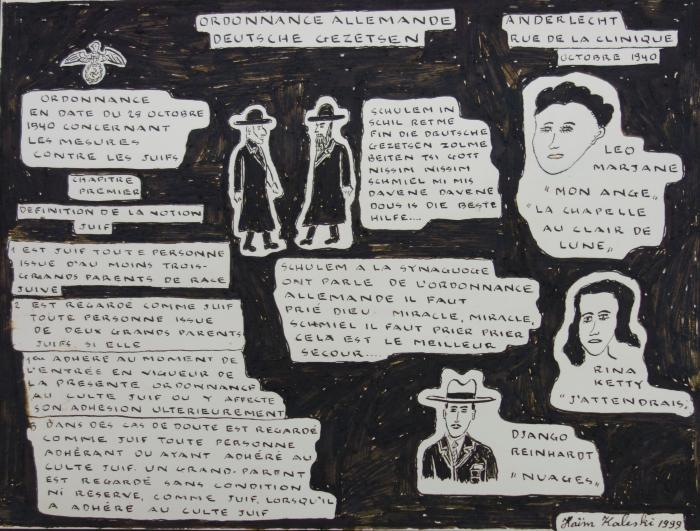 ORDONNANCE ALLEMANDE
DEUTSCHE GEZETSEN
ANDERLECHT
RUE DE LA CLINIQUE
OCTOBRE 1940
ORDONNANCE
EN DATE DU 28 OCTOBRE
1940 CONCERNANT
LES MESURES
CONTRE LES JUIFS
CHAPITRE
PREMIER
DEFINITION DE LA NOTION
JUIF
1 EST JUIF TOUTE PERSONNE
ISSUE D'AU MOINS TROIS-
GRANDS PARENTS DE RACE
JUIVE
2 EST REGARDÉ COMME JUIF
TOUTE PERSONNE ISSUE
DE DEUX GRANDS PARENTS
JUIFS SI ELLE
ADHERÉ AU MOMENT DE
L'ENTRÉE EN VIGUEUR DE
LA PRÉSENTE ORDONNANCE
AU CULTE JUIF OU Y AFFECTE
SON ADHESION ULTERIEUREMENT
3 DANS DES CAS DE DOUTE EST REGARDÉ
COMME JUIF TOUTE PERSONNE
ADHÉRANT OU AYANT ADHÉRÉ AU
CULTE JUIF. UN GRAND-PARENT
EST REGARDÉ SANS CONDITION
NI RESERVE, COMME JUIF, LORSQU'IL
A ADHÉRÉ AU CULTE JUIF
SCHULEM IN
SCHIL RETME
FIN DIE DEUTSCHE
GEZETSEN ZOLME
BEITEN TSI GOTT
NISSIM NISSIM
SCHMIEL MI MIS
DAVENE DAVENE
DOUS IS DIE BESTE
HILFE....
SCHULEM A LA SYNAGUOGE
ONT PARLE DE L'ORDONNANCE
ALLEMANDE IL FAUT
PRIÉ DIEU. MIRACLE, MIRACLE,
SCHMIEL IL FAUT PRIER PRIER
CELA EST LE MEILLEUR
SECOUR....
LEO
MARJANE
"MON ANGE"
"LA CHAPELLE
AU CLAIR DE
LUNE"
RINA
KETTY
"J'ATTENDRAIS"
DJANGO
REINHARDT
"NUAGES"
Haïm Kaleski 1999